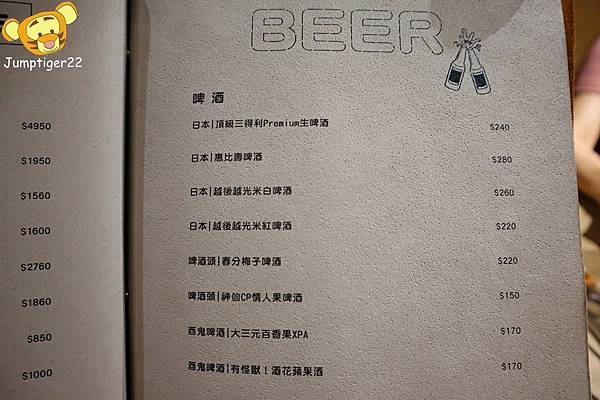 Jumptiger22
$4950
$1950
$1560
$1600
$2760
$1860
$850
$1000
BEER
啤酒
日本|頂級三得利Premium生啤酒 $240
日本|惠比壽啤酒 $280
日本|越後越光米白啤酒 $260
日本|越後越光米紅啤酒 $220
啤酒頭|春分梅子啤酒 $220
啤酒頭|神仙CP情人果啤酒 $150
酉鬼啤酒|大三元百香果XPA $170
酉鬼啤酒|有怪獸！酒花蘋果酒 $170